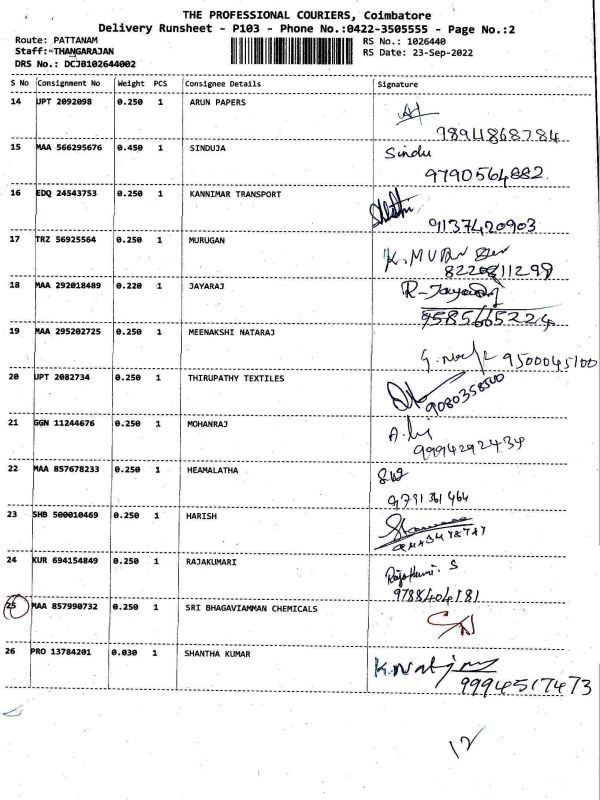 THE PROFESSIONAL COURIERS, Coimbatore
Delivery Runsheet - P103 - Phone No.:0422-3505555 - Page No.:2
Route: PATTANAM RS No.: 1026440
Staff: THANGARAJAN RS Date: 23-Sep-2022
DRS No.: DCJB102644002
S No Consignment No Weight PCS Consignee Details Signature
14 UPT 2092098 0.250 1 ARUN PAPERS
9894868784
15 MAA 566295676 0.450 1 SINDUJA Sindu
9790564882
16 EDQ 24543753 0.250 1 KANNIMAR TRANSPORT
9137420903
17 TRZ 56925564 0.250 1 MURUGAN
18 MAA 292018489 0.220 1 JAYARAJ
19 MAA 295202725 0.250 1 MEENAKSHI NATARAJ
9500045100
20 UPT 2082734 0.250 1 THIRUPATHY TEXTILES
9080358500
21 GGN 11244676 0.250 1 MOHANRAJ
9994292434
22 MAA 857678233 0.250 1 HEAMALATHA
9791361464
23 SHB 500010469 0.250 1 HARISH
24 KUR 694154849 0.250 1 RAJAKUMARI
9788404181
25 MAA 857990732 0.250 1 SRI BHAGAVIAMMAN CHEMICALS
26 PRO 13784201 0.030 1 SHANTHA KUMAR
9994517473
12